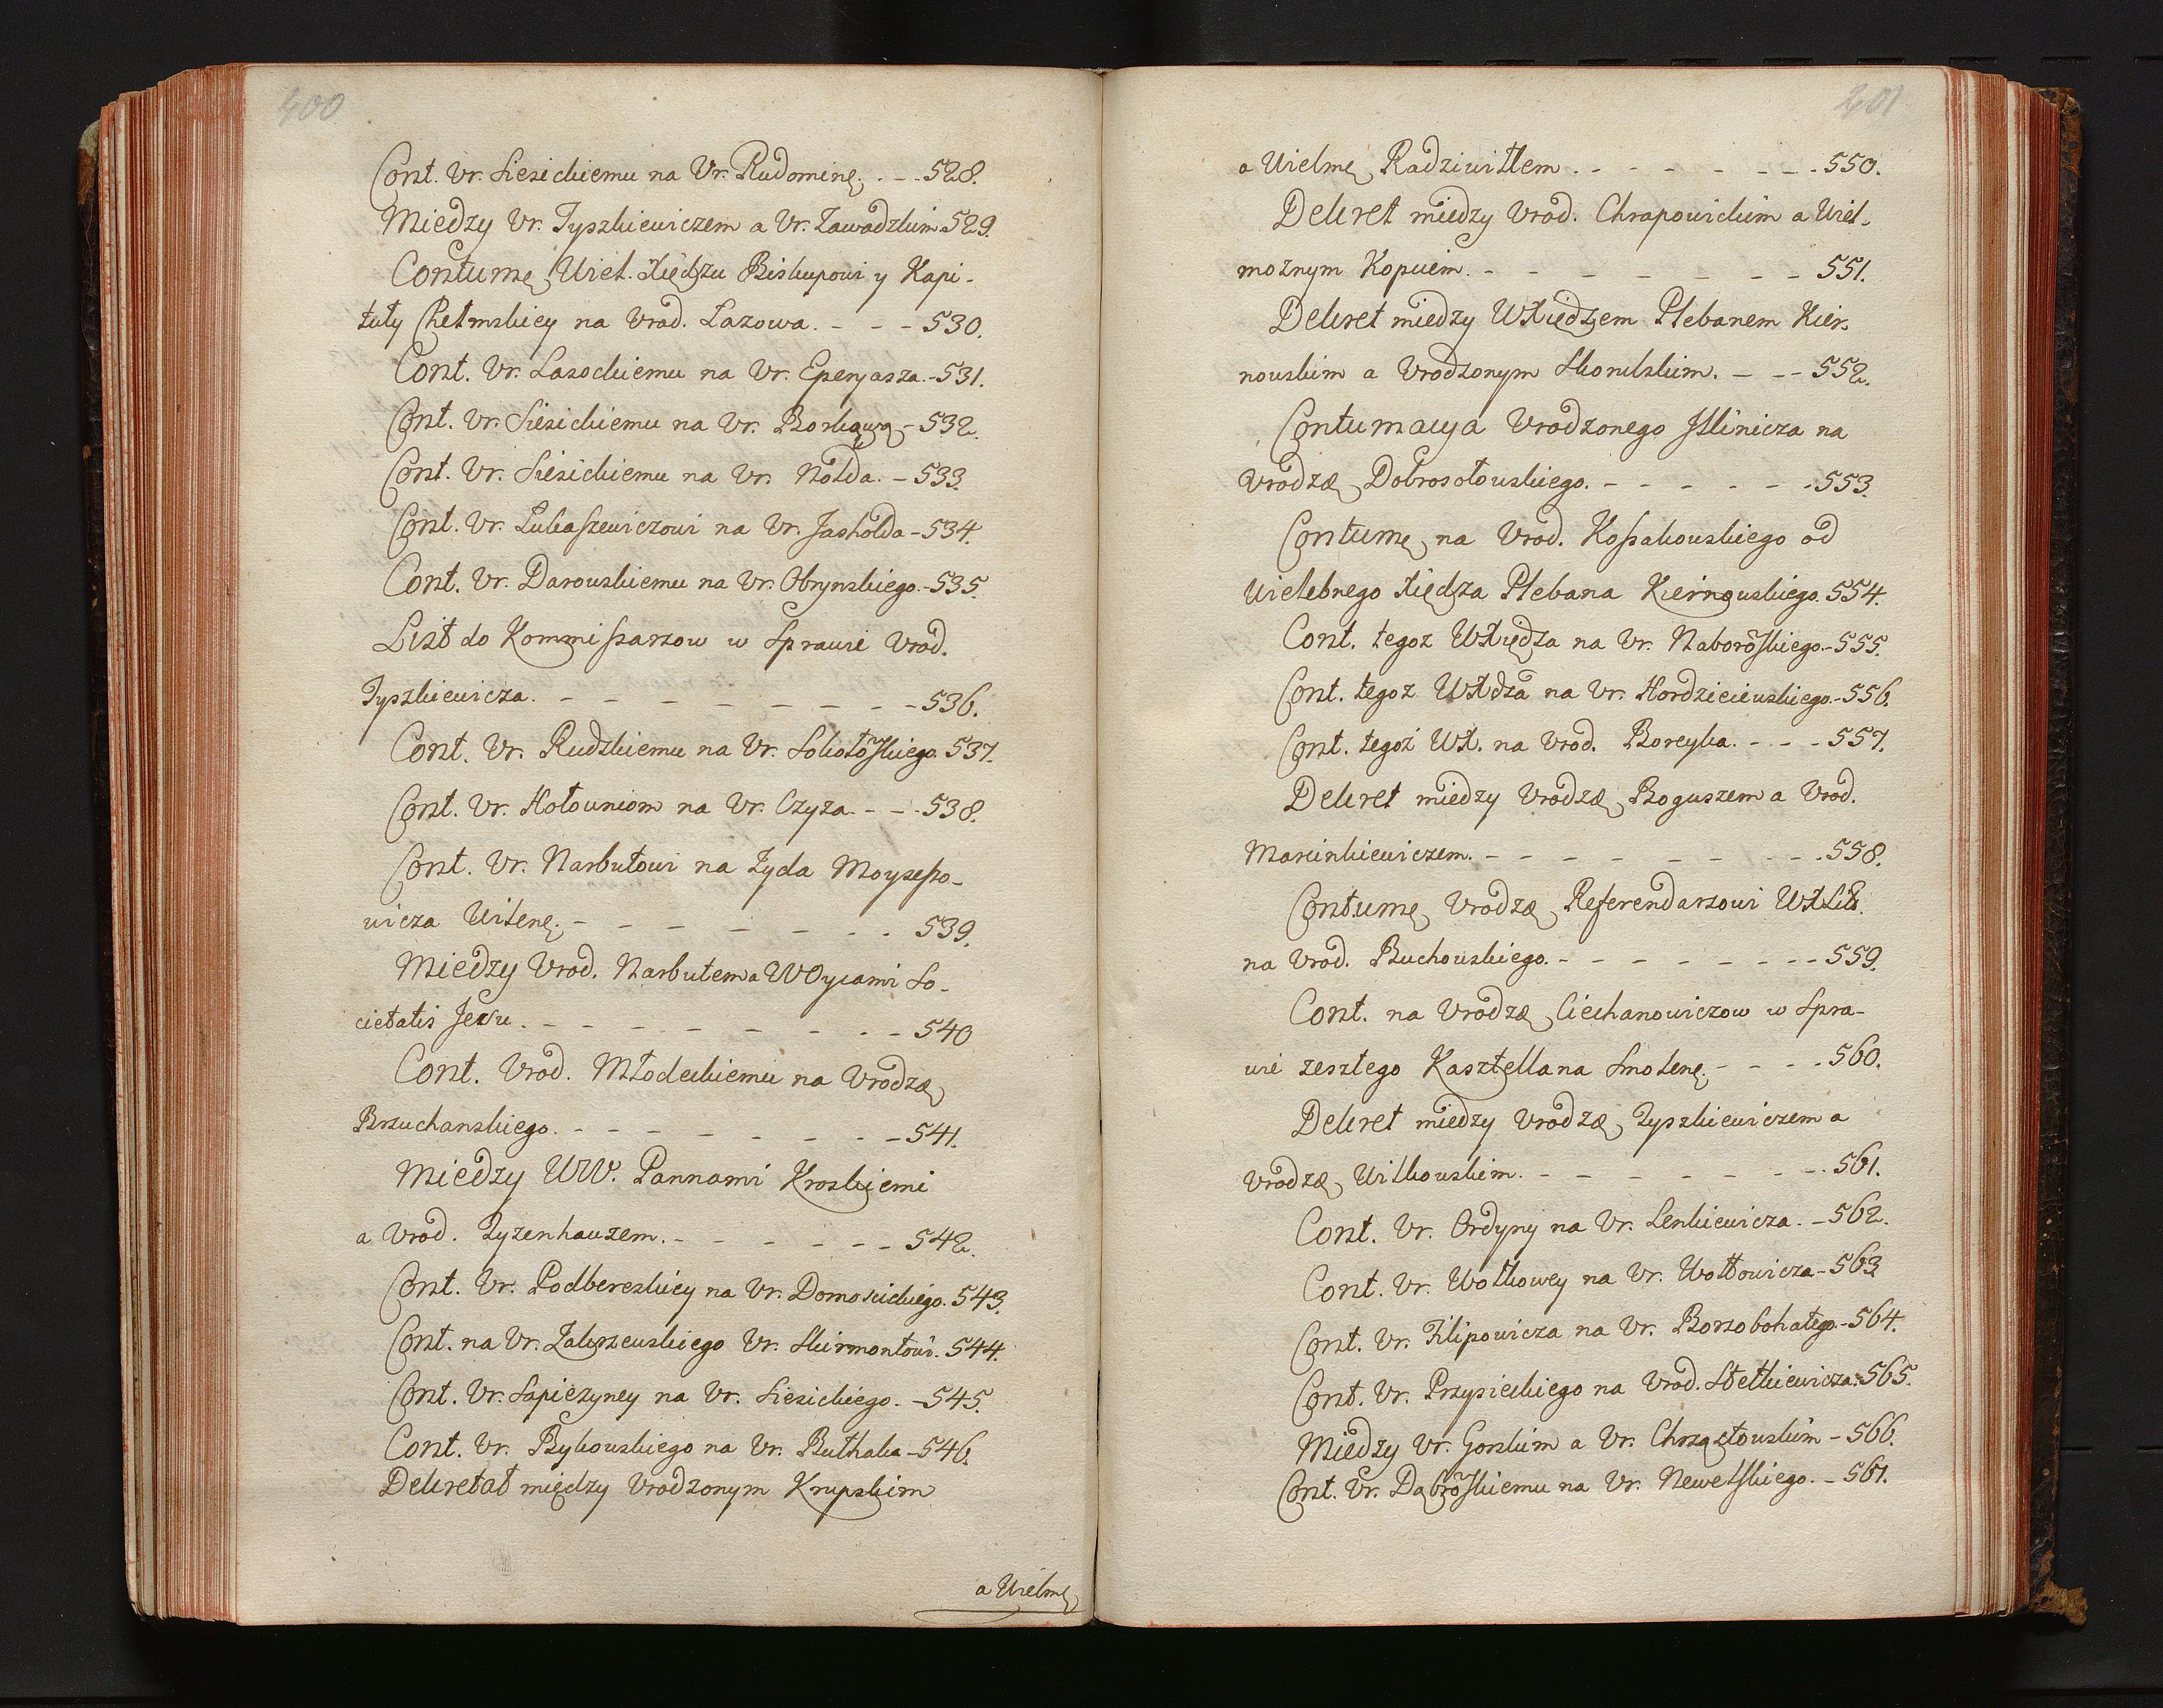 400
Cont. Vr. Siesickiemu na Vr. Rudominę. - - 528.
Miedzy Vr. Tyszkiewiczem a Vr. Zawadzkim. 529.
Contumę Wiel. Xiędzu Biskupowi y Kapi-
tuły Chełmskiey na Vrod. Lazowa. - - - 530.
Cont. Vr. Lasockiemu na Vr. Eperyasza. - 531.
Cont. Vr. Siesickiemu na Vr. Borkową - 532.
Cont. Vr. Siesickiemu na Vr. Nolda. - 533.
Cont. Vr. Lukaszewiczowi na Vr. Jasholda - 534.
Cont. Vr. Darowskiemu na Vr. Obrynskiego. - 535.
List do Kommissarzow w Sprawie Vrod.
Tyszkiewicza. - - - - - - - - 536.
Cont. Vr. Rudzkiemu na Vr. Sokołoskiego. 537.
Cont. Vr. Hołowniom na Vr. Czyza. - - - 538.
Cont. Vr. Narbutowi na Zyda Moyzeszo-
wicza Wilenę. - - - - - - - 539.
Miedzy Vrod. Narbutem a WOycami So-
cietatis Jesu. - - - - - - - - 540
Cont. Vrod. Młodeckiemu na Vrodzæ
Brzuchanskiego. - - - - - - - - 541.
Miedzy WW. Pannami Kroskiemi
a Vrod. Tyzenhauzem. - - - - - - 542.
Cont. Vr. Podbereskiey na Vr. Domosickiego. 543.
Cont. na Vr. Zakrzewskiego Vr. Skirmontowi. 544.
Cont. Vr. Sapiezyney na Vr. Siesickiego. - 545.
Cont. Vr. Bykowskiego na Vr. Buthaka - 546.
Dekretał między Vrodzonym Krupskim
a Wielmę
401
a Wielmę Radziwiłłem. - - - - - - - 550.
Dekret miedzy Vrod. Chrapowickim a Wiel-
moznym Kopciem. - - - - - - - 551.
Dekret miedzy WXiędzem Plebanem Kier-
nowskim a Vrodzonym Skorulskim. - - - 552.
Contumacya Vrodzonego Jllinicza na
Vrodzæ Dobrosołowskiego. - - - - - - 553.
Contumę na Vrod. Kossakowskiego od
Wielebnego Xiędza Plebana Kiernowskiego. 554.
Cont. tegoz WXiędza na Vr. Naboroskiego. - 555.
Cont. tegoz WXdza na Vr. Hordzieiewskiego. - 556.
Cont. tegoż WX. na Vrod. Boreyka. - - - 557.
Dekret miedzy Vrodzæ Boguszem a Vrod.
Marcinkiewiczem. - - - - - - - - 558.
Contumę Vrodzæ Referendarzowi WXLit.
na Vrod. Buchowskiego. - - - - - - - - 559.
Cont. na Vrodzæ Ciechanowiczow w Spra-
wie zeszłego Kasztellana Smolenę. - - - - 560.
Dekret miedzy Vrodzæ Tyszkiewiczem a
Vrodzæ Wilkowskim. - - - - - - - 561.
Cont. Vr. Ordyny na Vr. Lenkiewicza. - 562.
Cont. Vr. Wołkowey na Vr. Wołłowicza - 563
Cont. Vr. Filipowicza na Vr. Borzobohatego. - 564.
Cont. Vr. Przysieckiego na Vrod. Stetkiewicza. 565.
Miedzy Vr. Gorskim a Vr. Chrząstowskim - 566.
Cont. Vr. Dąbroskiemu na Vr. Newelskiego. - 567.